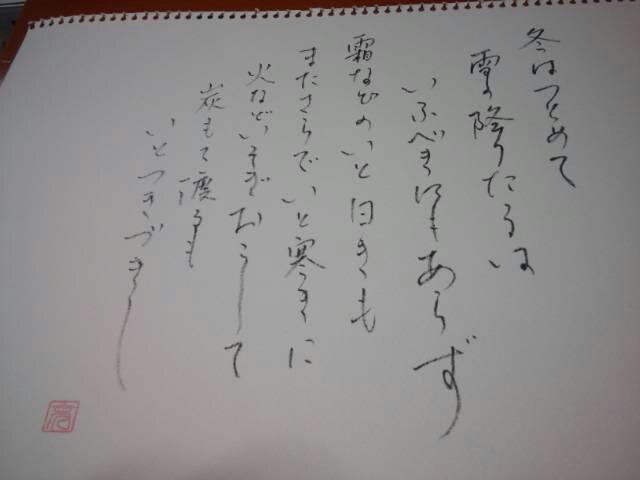 冬はつとめて
雪の降りたるは
いふべきにもあらず
霜などのいと白きも
またさらでいと寒きに
火などいそぎおこして
炭もて渡るも
いとつきづきし